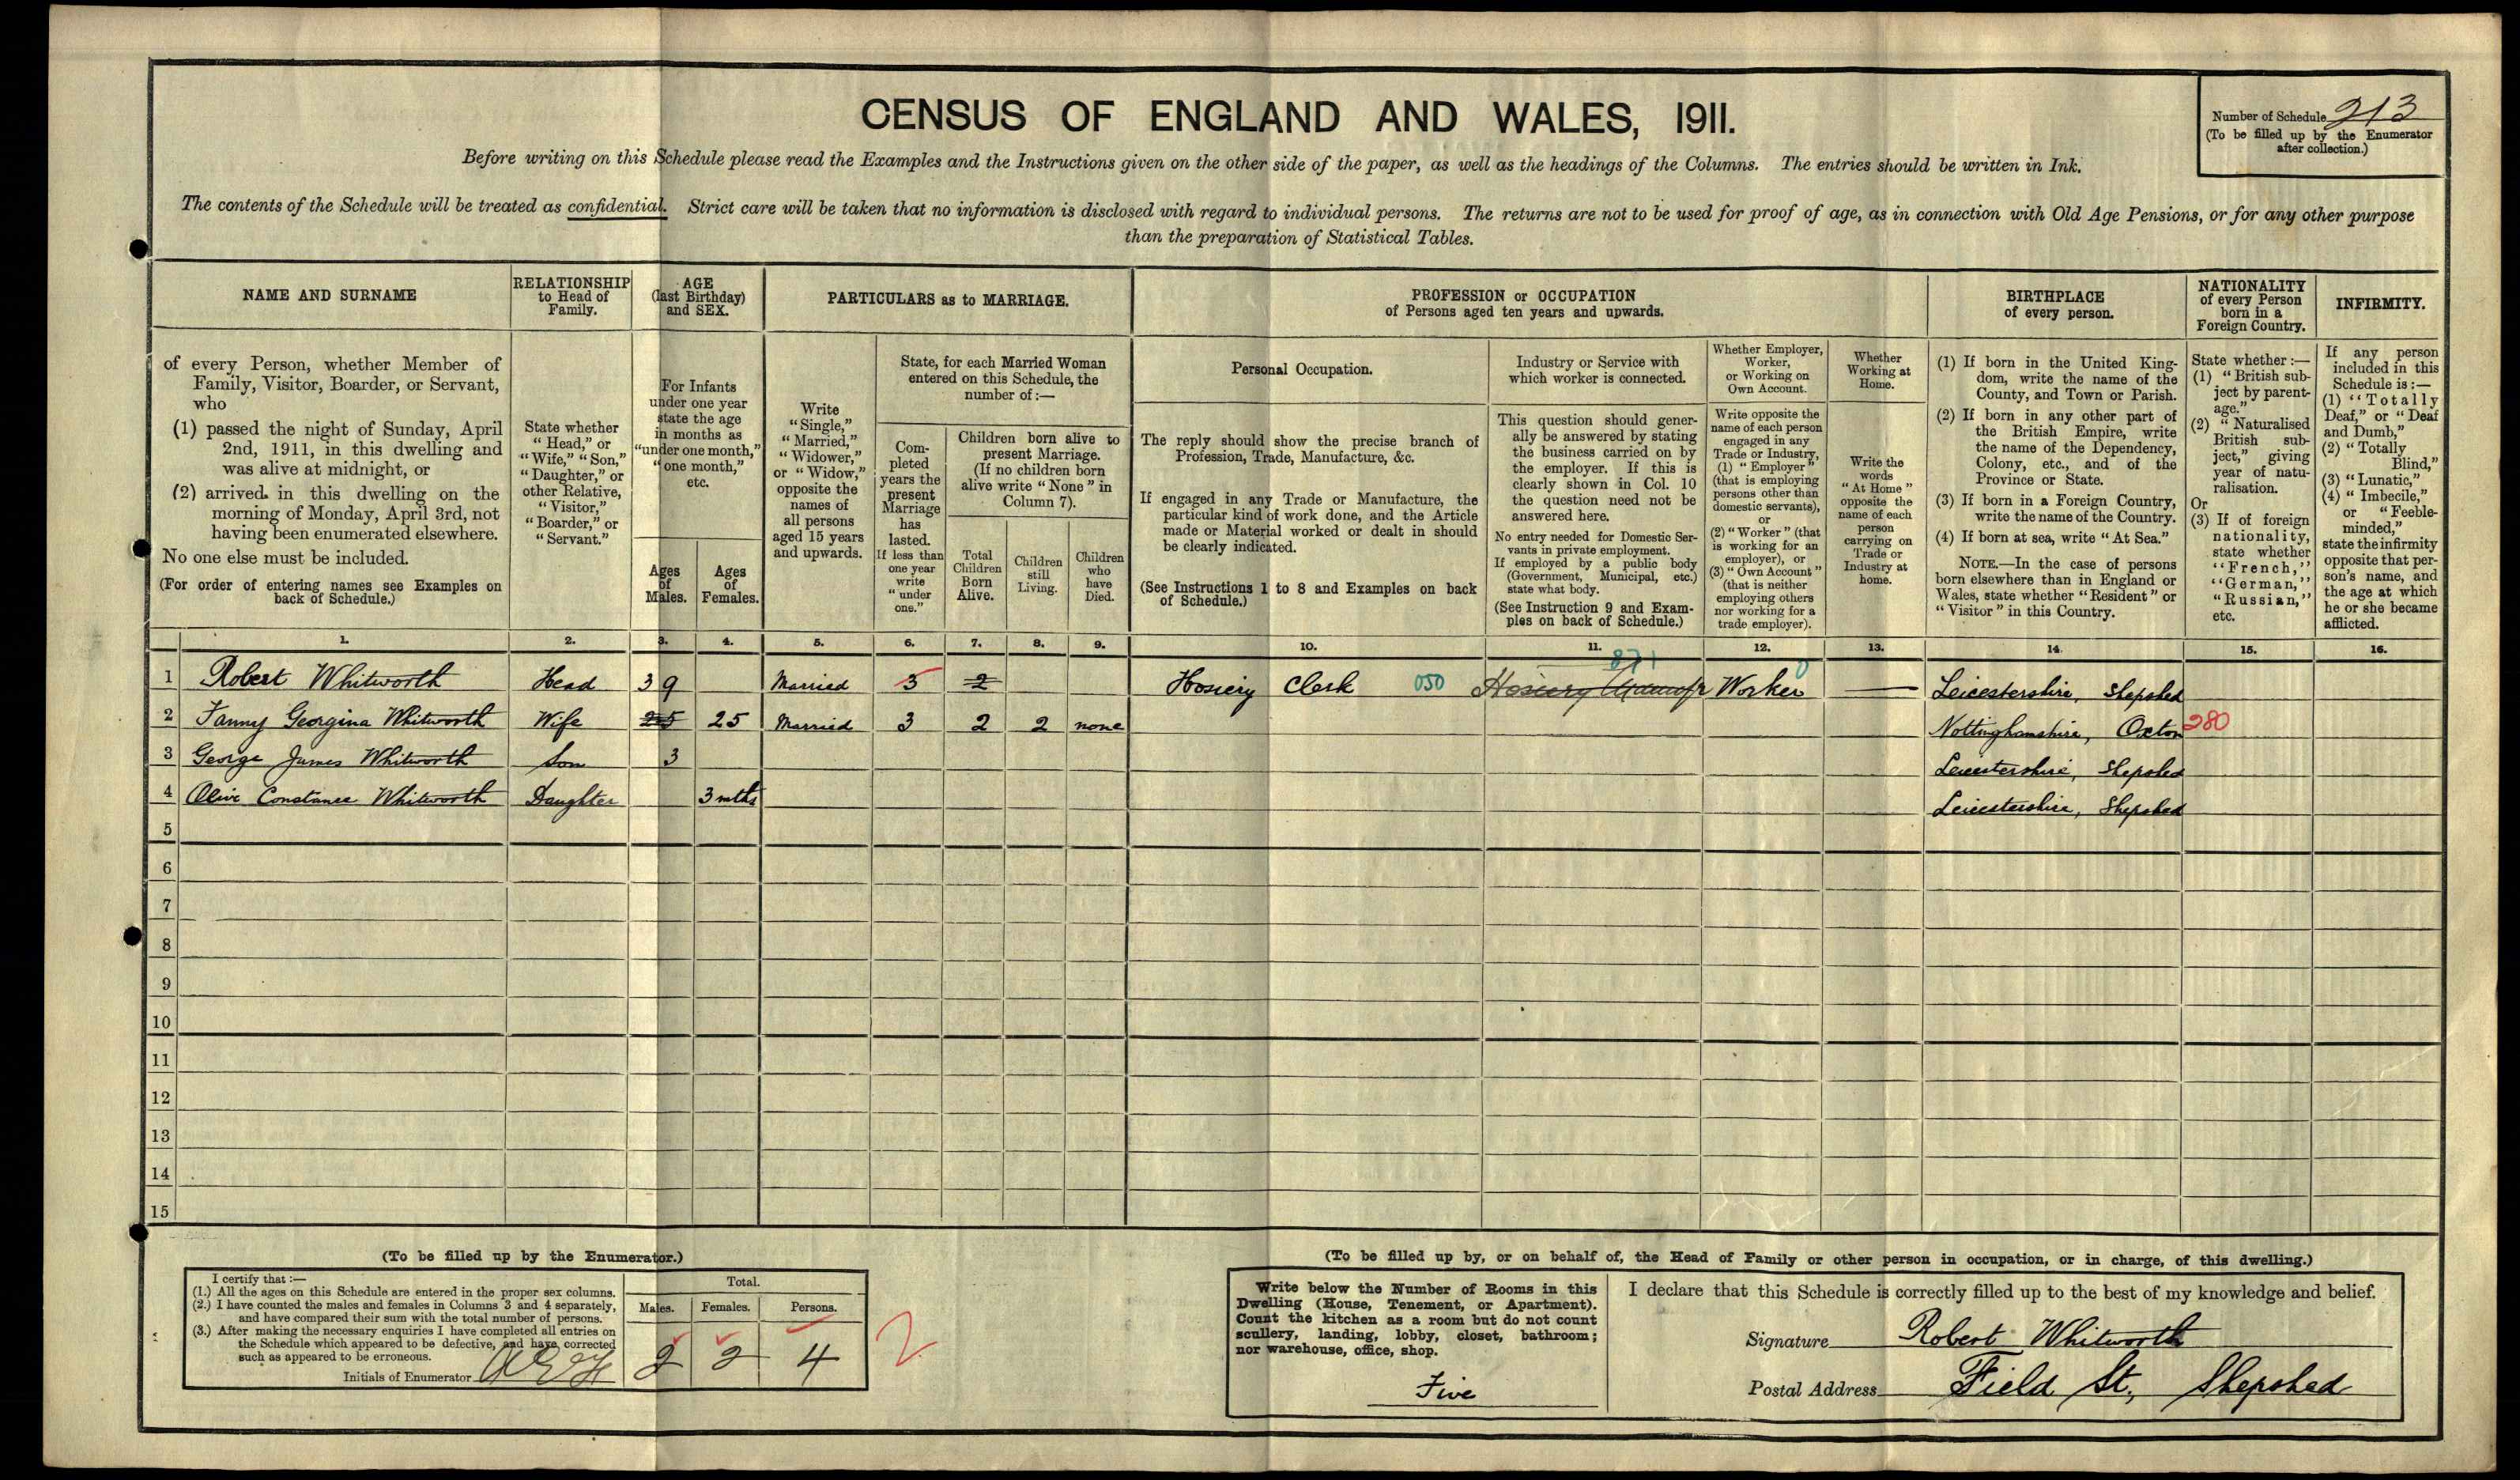 CENSUS OF ENGLAND AND WALES, 1911.
Number of Schedule 213
(To be filled up by the Enumerator
after collection.)
Before writing on this Schedule please read the Examples and the Instructions given on the other side of the paper, as well as the headings of the Columns. The entries should be written in Ink.
The contents of the Schedule will be treated as confidential. Strict care will be taken that no information is disclosed with regard to individual persons. The returns are not to be used for proof of age, as in connection with Old Age Pensions, or for any other purpose
than the preparation of Statistical Tables.
NAME AND SURNAME
of every Person, whether Member of
Family, Visitor, Boarder, or Servant,
who
(1) passed the night of Sunday, April
2nd, 1911, in this dwelling and
was alive at midnight, or
(2) arrived in this dwelling on the
morning of Monday, April 3rd, not
having been enumerated elsewhere.
No one else must be included.
(For order of entering names see Examples on
back of Schedule.)
RELATIONSHIP
to Head of
Family.
State whether
"Head," or
"Wife," "Son,"
"Daughter," or
other Relative,
"Visitor,"
"Boarder," or
"Servant."
AGE
(last Birthday)
and SEX.
For Infants
under one year
state the age
in months as
"under one month,"
"one month,"
etc.
Ages
of
Males.
Ages
of
Females.
PARTICULARS as to MARRIAGE.
Write
"Single,"
"Married,"
"Widower,"
or "Widow,"
opposite the
names of
all persons
aged 15 years
and upwards.
State, for each Married Woman
entered on this Schedule, the
number of :—
Com-
pleted
years the
present
Marriage
has
lasted.
If less than
one year
write
"under
one."
Children born alive to
present Marriage.
(If no children born
alive write "None" in
Column 7).
Total
Children
Born
Alive.
Children
still
Living.
Children
who
have
Died.
PROFESSION or OCCUPATION
of Persons aged ten years and upwards.
Personal Occupation.
The reply should show the precise branch of
Profession, Trade, Manufacture, &c.
If engaged in any Trade or Manufacture, the
particular kind of work done, and the Article
made or Material worked or dealt in should
be clearly indicated.
(See Instructions 1 to 8 and Examples on back
of Schedule.)
Industry or Service with
which worker is connected.
This question should gener-
ally be answered by stating
the business carried on by
the employer. If this is
clearly shown in Col. 10
the question need not be
answered here.
No entry needed for Domestic Ser-
vants in private employment.
If employed by a public body
(Government, Municipal, etc.)
state what body.
(See Instruction 9 and Exam-
ples on back of Schedule.)
Whether Employer,
Worker,
or Working on
Own Account.
Write opposite the
name of each person
engaged in any
Trade or Industry,
(1) "Employer"
(that is employing
persons other than
domestic servants),
or
(2) "Worker" (that
is working for an
employer), or
(3) "Own Account"
(that is neither
employing others
nor working for a
trade employer).
Whether
Working at
Home.
Write the
words
"At Home"
opposite the
name of each
person
carrying on
Trade or
Industry at
home.
BIRTHPLACE
of every person.
(1) If born in the United King-
dom, write the name of the
County, and Town or Parish.
(2) If born in any other part of
the British Empire, write
the name of the Dependency,
Colony, etc., and of the
Province or State.
(3) If born in a Foreign Country,
write the name of the Country.
(4) If born at sea, write "At Sea."
NOTE.—In the case of persons
born elsewhere than in England or
Wales, state whether "Resident" or
"Visitor" in this Country.
NATIONALITY
of every Person
born in a
Foreign Country.
State whether :—
(1) "British sub-
ject by parent-
age."
(2) "Naturalised
British sub-
ject," giving
year of natu-
ralisation.
Or
(3) If of foreign
nationality,
state whether
"French,"
"German,"
"Russian,"
etc.
INFIRMITY.
If any person
included in this
Schedule is :—
(1) "Totally
Deaf," or "Deaf
and Dumb,"
(2) "Totally
Blind,"
(3) "Lunatic,"
(4) "Imbecile,"
or "Feeble-
minded,"
state the infirmity
opposite that per-
son's name, and
the age at which
he or she became
afflicted.
1. 2. 3. 4. 5. 6. 7. 8. 9. 10. 11. 12. 13. 14. 15. 16.
871 0
1 Robert Whitworth Head 39 Married 3 2 Hosiery Clerk 050 Hosiery Worker — Leicestershire, Shepshed
2 Fanny Georgina Whitworth Wife 25 25 Married 3 2 2 none Nottinghamshire, Oxton 280
3 George James Whitworth Son 3 Leicestershire, Shepshed
4 Olive Constance Whitworth Daughter 3 mths Leicestershire, Shepshed
5
6
7
8
9
10
11
12
13
14
15
(To be filled up by the Enumerator.)
I certify that :—
(1.) All the ages on this Schedule are entered in the proper sex columns.
(2.) I have counted the males and females in Columns 3 and 4 separately,
and have compared their sum with the total number of persons.
(3.) After making the necessary enquiries I have completed all entries on
the Schedule which appeared to be defective, and have corrected
such as appeared to be erroneous.
Initials of Enumerator
Total.
Males. Females. Persons.
2 2 4
2
(To be filled up by, or on behalf of, the Head of Family or other person in occupation, or in charge, of this dwelling.)
Write below the Number of Rooms in this
Dwelling (House, Tenement, or Apartment).
Count the kitchen as a room but do not count
scullery, landing, lobby, closet, bathroom;
nor warehouse, office, shop.
Five
I declare that this Schedule is correctly filled up to the best of my knowledge and belief.
Signature Robert Whitworth
Postal Address Field St, Shepshed